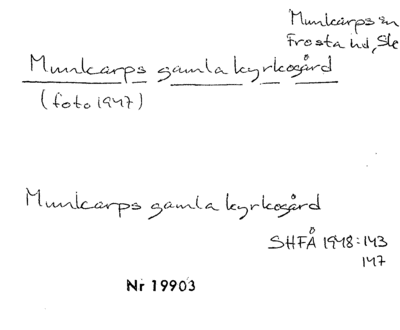 Munkarps sn
Frosta hd, Sk
Munkarps gamla kyrkogård
(foto 1947)
Munkarps gamla kyrkogård
SHFÅ 1948:143
147
Nr 19903